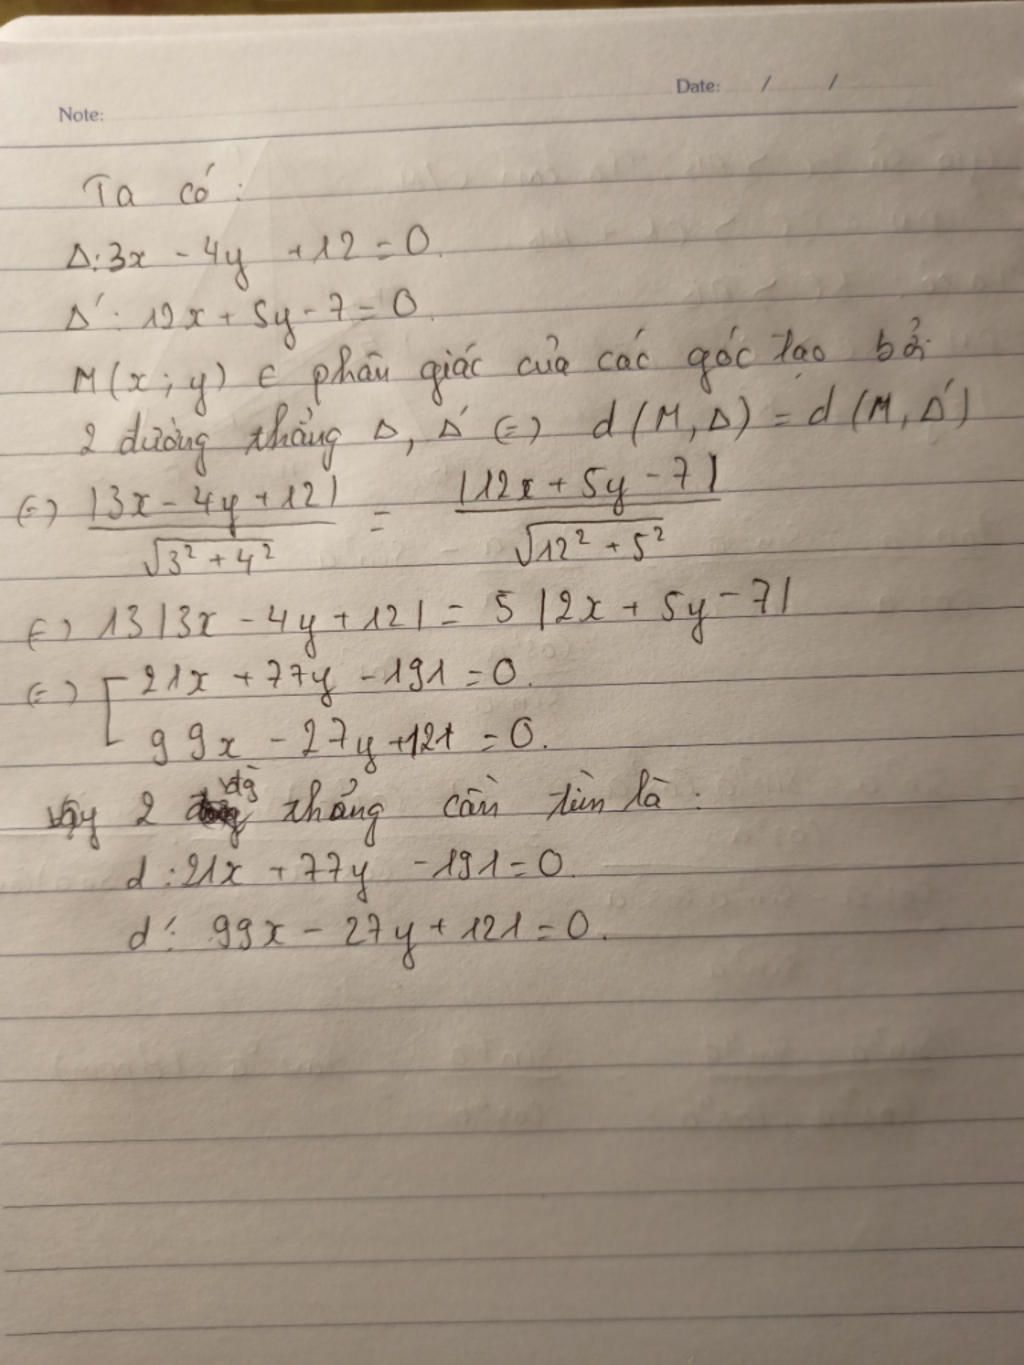 Note:
Date: / /
Ta có:
Δ: 3x - 4y + 12 = 0.
Δ': 12x + 5y - 7 = 0.
M(x; y) ∈ phân giác của các góc tạo bởi
2 đường thẳng Δ, Δ' (=) d(M, Δ) = d(M, Δ')
(=) |3x - 4y + 12| / √3² + 4² = |12x + 5y - 7| / √12² + 5²
(=) 13|3x - 4y + 12| = 5|2x + 5y - 7|
(=) [ 21x + 77y - 191 = 0.
99x - 27y + 121 = 0.
Vậy 2 đg thẳng cần tìm là:
d: 21x + 77y - 191 = 0.
d': 99x - 27y + 121 = 0.